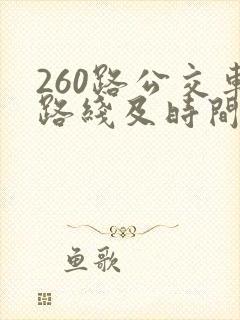 260路公交車
路綫及時間
鱼歌